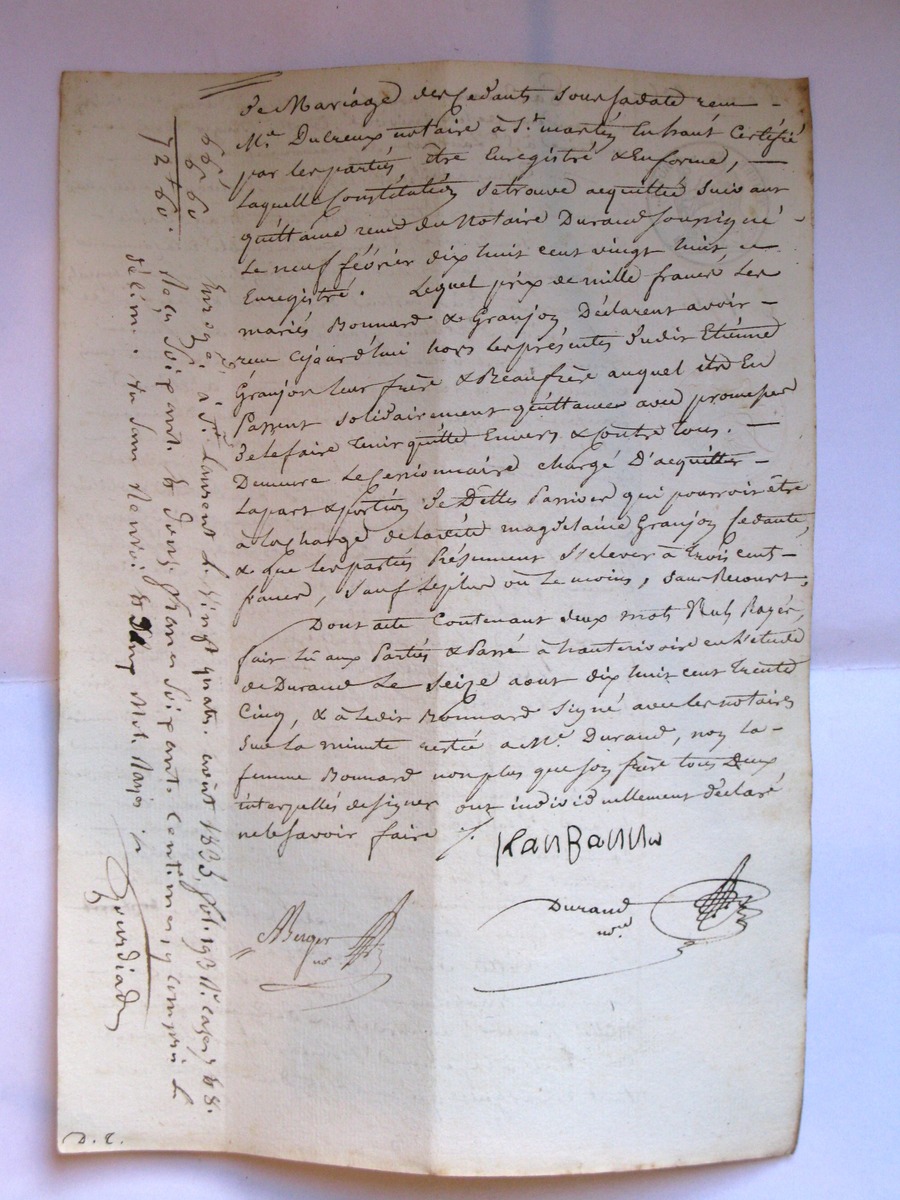 de Mariage des Cedants sous sa date reçu
Me. Dulreux notaire à St. martin en haut Certifié
par les parties être Enregistré & En forme,
Laquelle Constitution se trouve acquittée suivant
quittance reçue du Notaire Durand soussigné
Le neuf février dix huit cent vingt huit
Enregistré. Lequel prix de mille francs les
mariés Bonnard & Granjon Déclarent avoir
reçu cejourd'hui hors les présentes dudit Etienne
Granjon leur frère & Beaufrère auquel ils En
Passent solidairement quittance avec promesse
de le faire tenir quitte Envers & Contre tous.
Demeure Le Cessionnaire chargé D'acquitter
la part & portion de Dettes Passives qui pourroit être
à la charge de ladite magdelaine Granjon Cedante,
& que les parties Présument s'élever à trois cent
francs, sauf le plus ou Le moins, sans Recours.
Dont acte Contenant deux mots Nuls Rayés,
fait lû aux Parties & Passé à hauterivoire en L'étude
de Durand Le Seize aout dix huit cent trente
Cinq, & a Ledit Bonnard signé avec les notaires
sur la minute restée a Me. Durand, non la
femme Bonnard non plus que son frère tous Deux
interpellés de signer ont individuellement déclaré
ne le savoir faire
Durand
nre
Berger
nre
66
6 60
72 60
Enregé. à St. Laurent L. vingt quatre août 1835, fol. 193 Ro. cases
Reçu soixante & douze francs soixante centimes, y compris L
décime. Un sans Renvoi
D. C.